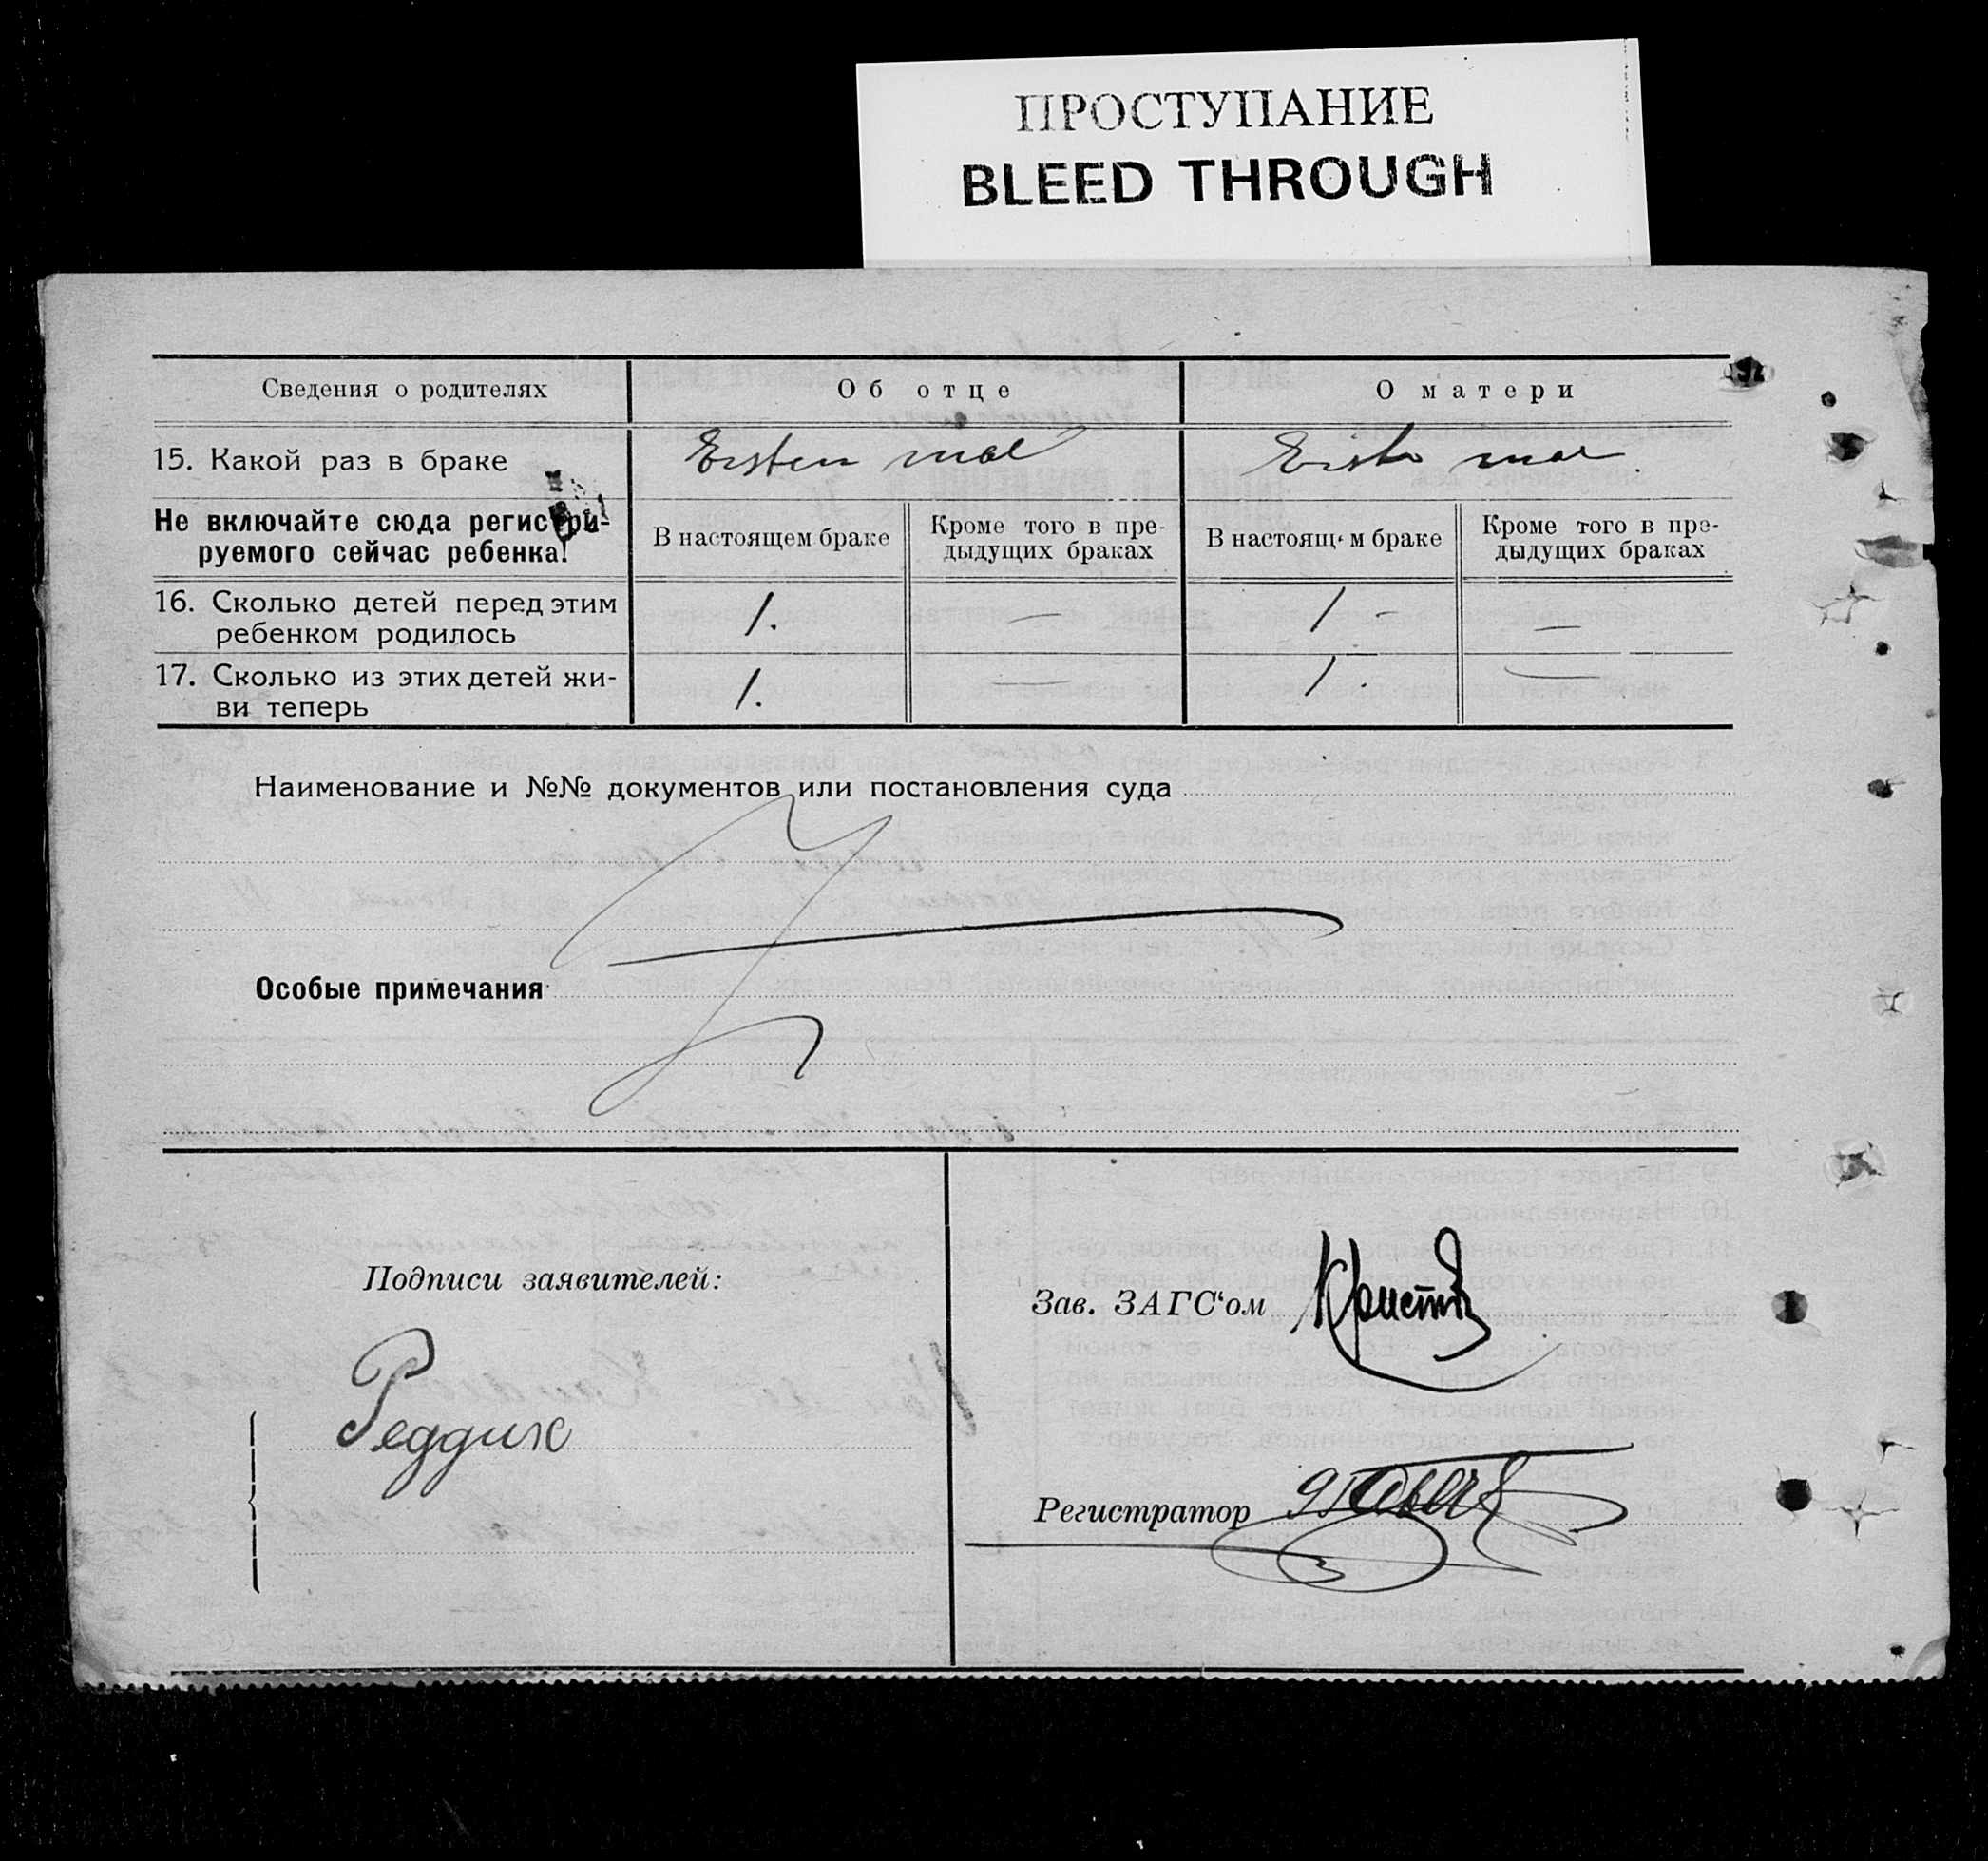 ПРОСТУПАНИЕ
BLEED THROUGH
Сведения о родителях Об отце О матери
15. Какой раз в браке Ersten mal Erste mal
Не включайте сюда регистри-
руемого сейчас ребенка!
В настоящем браке
Кроме того в пре-
дыдущих браках
В настоящем браке
Кроме того в пре-
дыдущих браках
16. Сколько детей перед этим
ребенком родилось
1. — 1 — —
17. Сколько из этих детей жи-
ви теперь
1. — 1. —
Наименование и №№ документов или постановления суда
Особые примечания
Подписи заявителей:
Реддих
Зав. ЗАГС‘ом
Регистратор